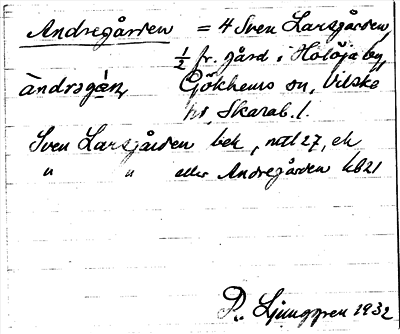 Andregården = 4 Sven Larsgården,
1/2 fr. gård i Holöja by,
àndragán, Gökhems sn, Vilske
hd, Skarab. l.
Sven Larsgården bek, natl 27, ek
" " eller Andregården kb 21
P. Ljunggren 1932